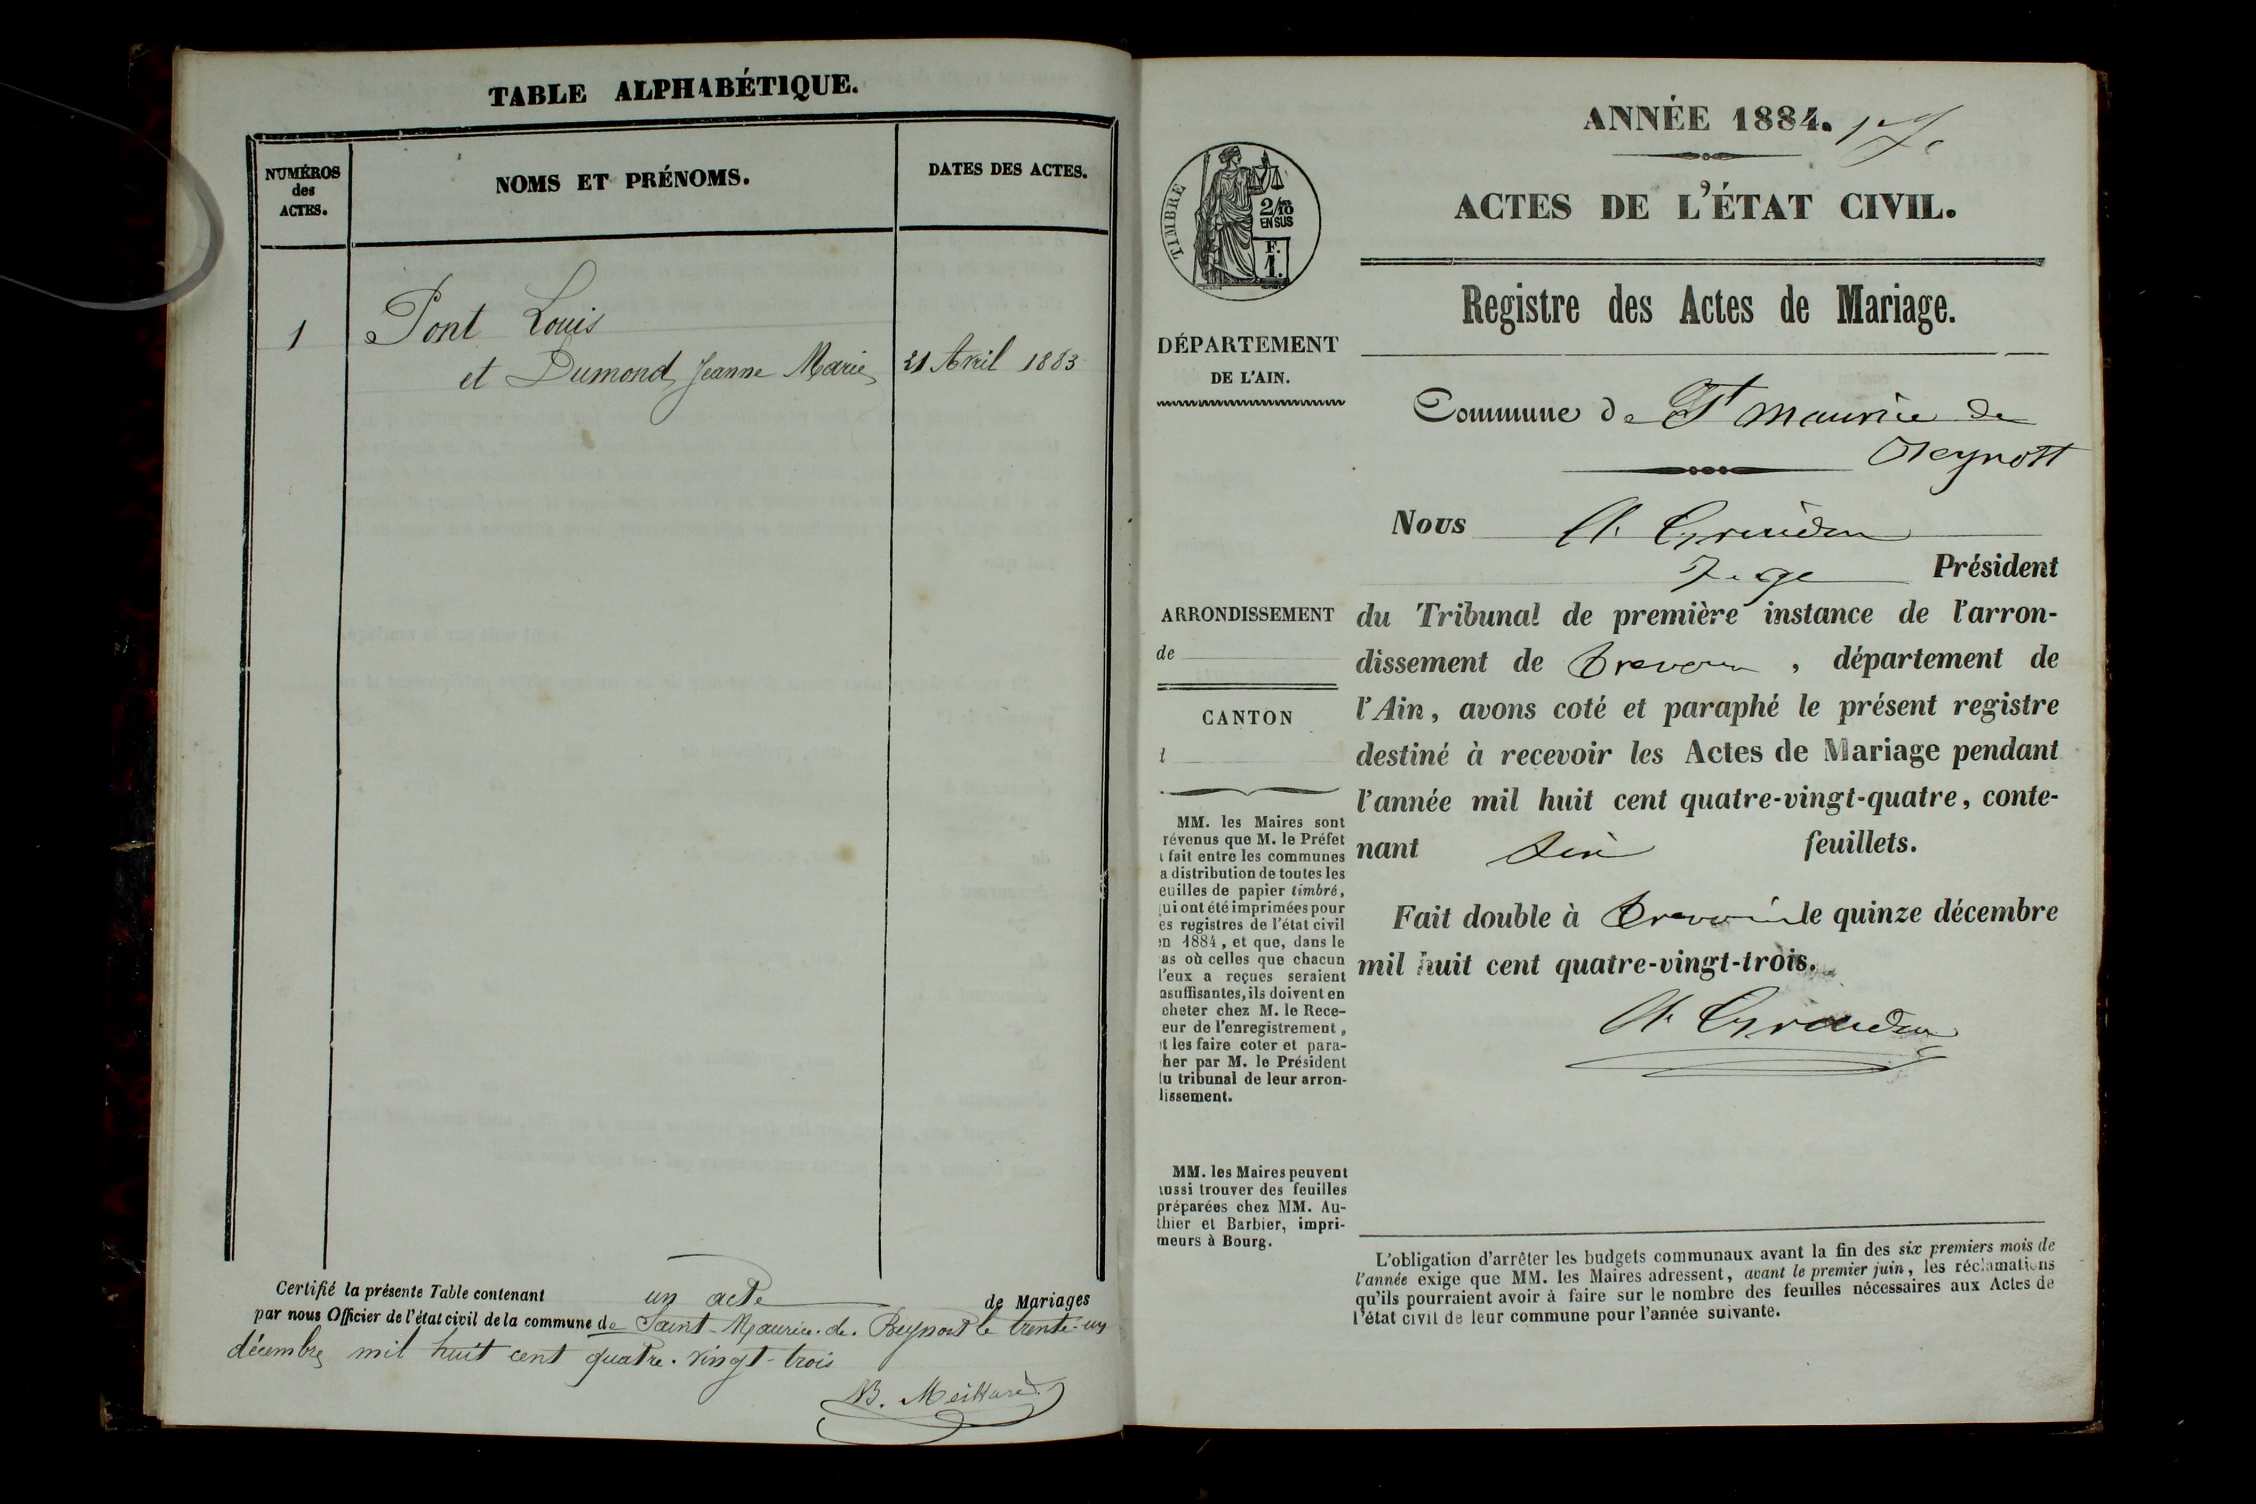 TABLE ALPHABÉTIQUE.
NUMÉROS
des
ACTES.
NOMS ET PRÉNOMS.
DATES DES ACTES.
1
Pont Louis
et Dumond Jeanne Marie
21 Avril 1883
Certifié la présente Table contenant un acte de Mariages
par nous Officier de l'état civil de la commune de Saint-Maurice-de-Beynost le trente-un
décembre mil huit cent quatre-vingt-trois
ANNÉE 1884.
ACTES DE L'ÉTAT CIVIL.
TIMBRE
2/10
EN SUS
F.
1.
Registre des Actes de Mariage.
DÉPARTEMENT
DE L'AIN.
Commune de St Maurice de
Beynost
Nous
Juge Président
ARRONDISSEMENT
de
CANTON
du Tribunal de première instance de l'arron-
dissement de Trevoux, département de
l'Ain, avons coté et paraphé le présent registre
destiné à recevoir les Actes de Mariage pendant
l'année mil huit cent quatre-vingt-quatre, conte-
nant six feuillets.
Fait double à Trevoux le quinze décembre
mil huit cent quatre-vingt-trois.
MM. les Maires sont
révenus que M. le Préfet
fait entre les communes
a distribution de toutes les
euilles de papier timbré,
ui ont été imprimées pour
es registres de l'état civil
n 1884, et que, dans le
as où celles que chacun
l'eux a reçues seraient
nsuffisantes, ils doivent en
cheter chez M. le Rece-
eur de l'enregistrement,
t les faire coter et para-
her par M. le Président
u tribunal de leur arron-
lissement.
MM. les Maires peuvent
ussi trouver des feuilles
préparées chez MM. Au-
thier et Barbier, impri-
meurs à Bourg.
L'obligation d'arrêter les budgets communaux avant la fin des six premiers mois de
l'année exige que MM. les Maires adressent, avant le premier juin, les réclamations
qu'ils pourraient avoir à faire sur le nombre des feuilles nécessaires aux Actes de
l'état civil de leur commune pour l'année suivante.